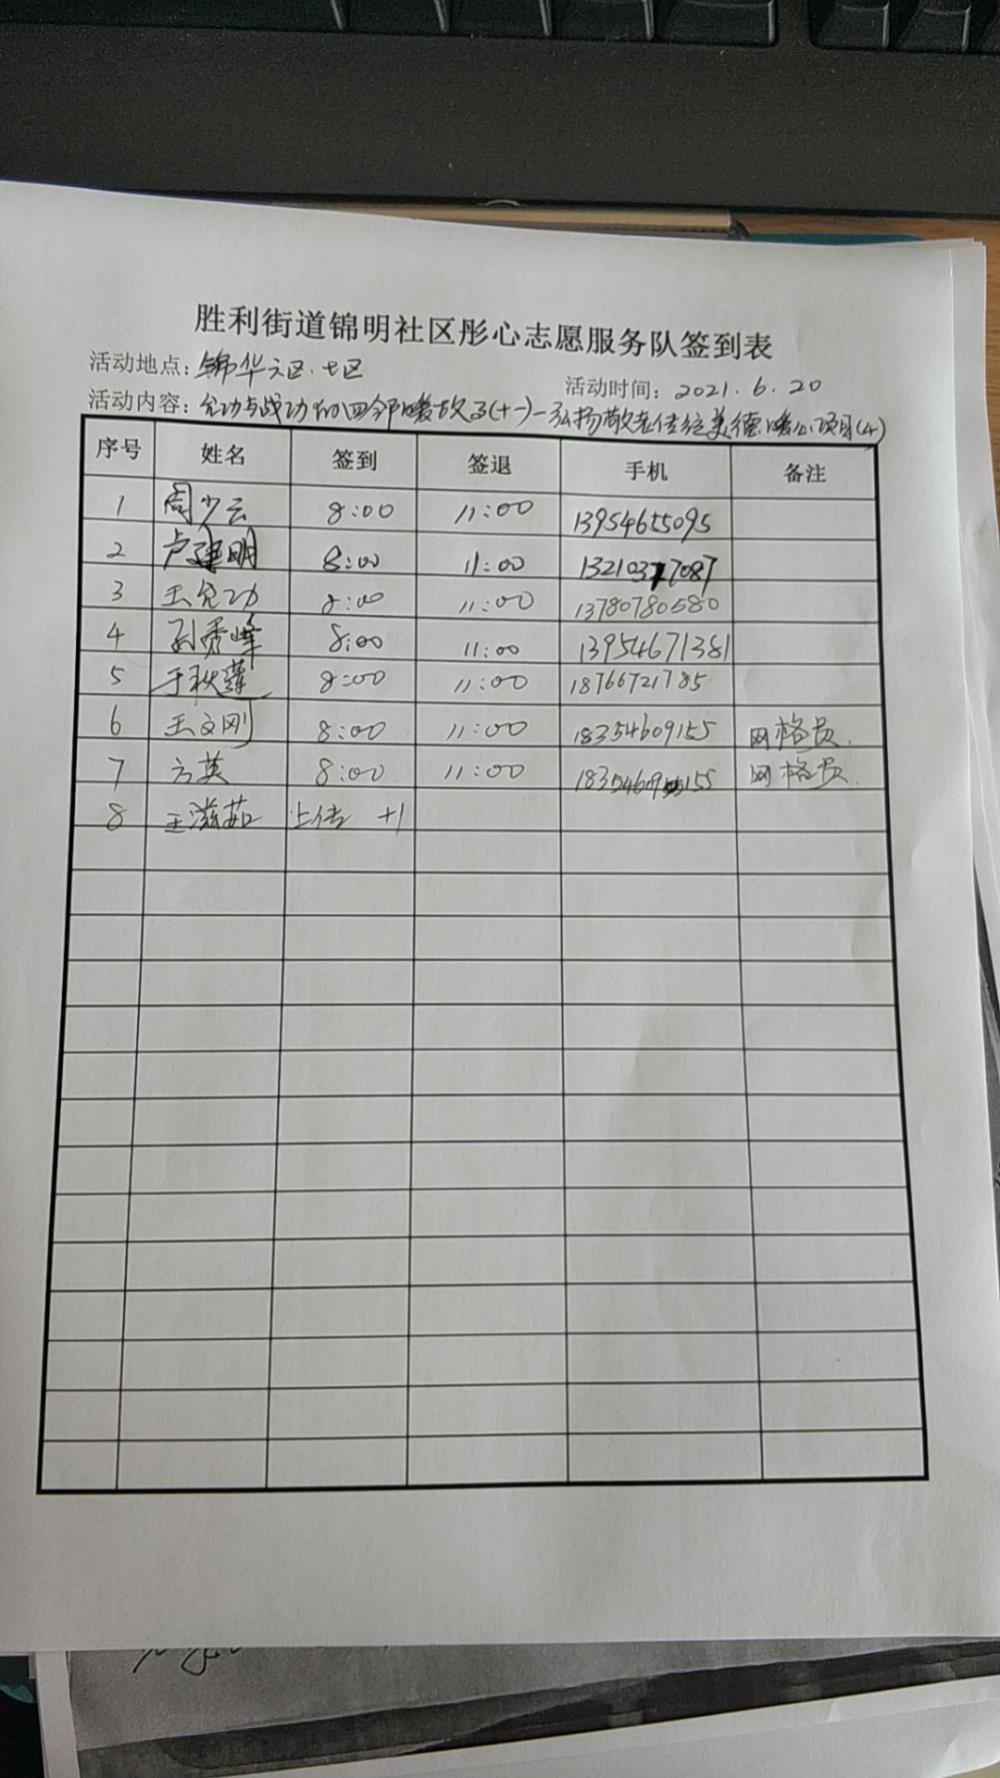 胜利街道锦明社区彤心志愿服务队签到表
活动地点：锦华六区.七区 活动时间：2021.6.20
活动内容：允功与战功和四邻暖故事(十一)-弘扬敬老传统美德暖心项目(4)
序号 姓名 签到 签退 手机 备注
1 周少云 8:00 11:00 13954655095
2 卢建明 8:00 11:00 13210377087
3 王允功 8:00 11:00 13780780580
4 孙秀峰 8:00 11:00 13954671381
5 于秋莲 8:00 11:00 18766721785
6 王文刚 8:00 11:00 18354609155 网格员.
7 方英 8:00 11:00 18354609155 网格员.
8 王滋茹 上传 +1